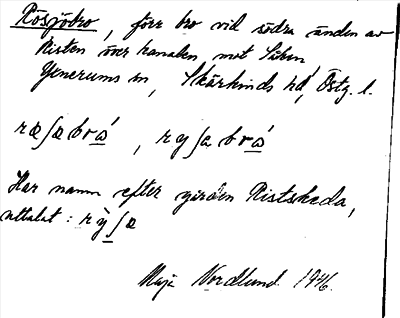 Rösjöbro, förr bro vid södra änden av
Risten över kanalen mot Såken
Yxnerums sn, Skärkinds hd, Östg. l.
ræʃøbroá, ryʃabroá
Har namn efter gården Ristskeda,
uttalat: rỳʃø
Maja Nordlund 1946.